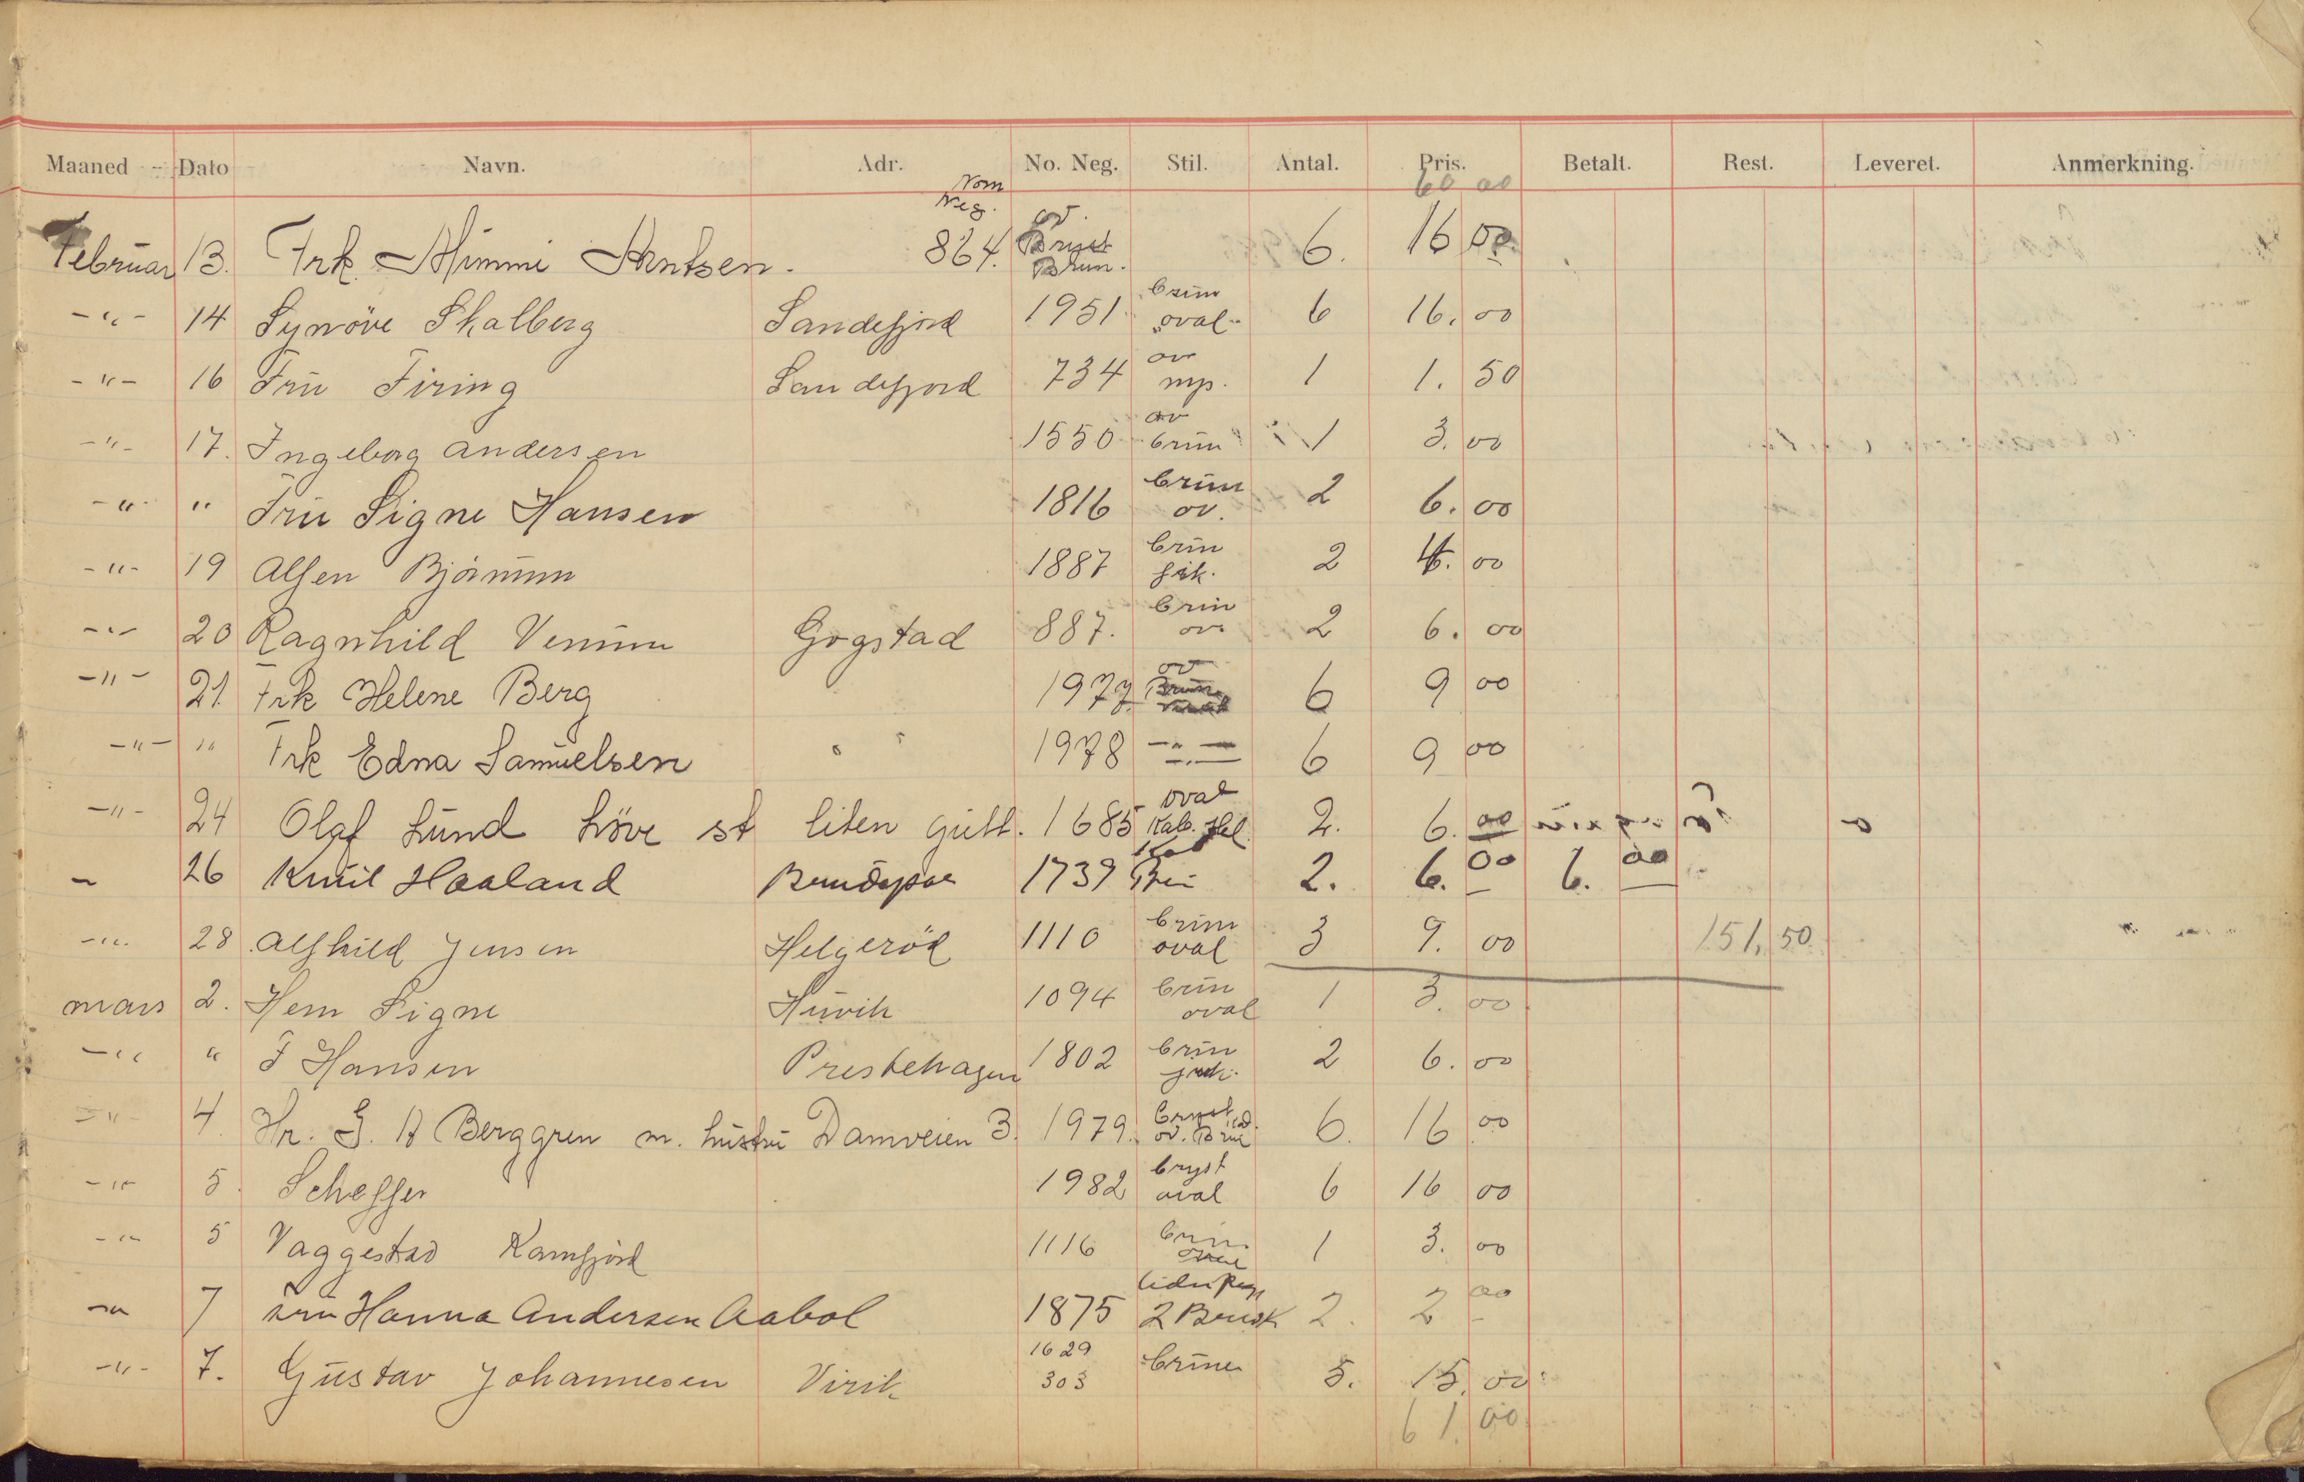 Maaned Dato Navn. Adr. No. Neg. Stil. Antal. Pris. Betalt. Rest. Leveret. Anmerkning.
60 00
Februar 13. Frk. Mimmi Arntsen. Neg. 864. ov. Bryst Brun. 6. 16 00
-"- 14 Synöve Skalberg Sandefjord 1951 brun oval 6 16. 00
-"- 16 Fru Firing Sandefjord 734 ov mp. 1 1. 50
-"- 17. Ingeborg Andersen 1550 ov brun 1 3. 00
-"- " Fru Signe Hansen 1816 brun ov. 2 6. 00
-"- 19 Alfen 1887 brun 2 4. 00
-"- 20 Ragnhild Gogstad 887. brun ov. 2 6. 00
-"- 21. Frk Helene Berg 1977. ov Brun 6 9 00
-"- " Frk Edna Samuelsen " " 1978 -"- 6 9 00
-"- 24 Olaf Lund höve st liten gutt. 1685 oval Kab. Hel. 2. 6. 00
26 Haaland 1739 2. 6. 00 6. 00
-"- 28 Alfhild Jensen Helgeröd 1110 brun oval 3 9. 00 151. 50
mars 2. Hem Signe 1094 brun oval 1 3. 00
-"- " F Hansen Prestehagen 1802 brun 2 6. 00
-"- 4 Hr. G. A Berggren m. hustru Damveien 3. 1979. ov. 6. 16 00
-"- 5. Scheffer 1982 bryst oval 6 16 00
-"- 5 Vaggestad Kamfjord 1116 brun 1 3. 00
-"- 7 Fru Hanna Andersen Aabol 1875 2 2. 2 00
-"- 7. Gustav Johannesen Virik 1629 303 brune 5. 15. 00
61. 00